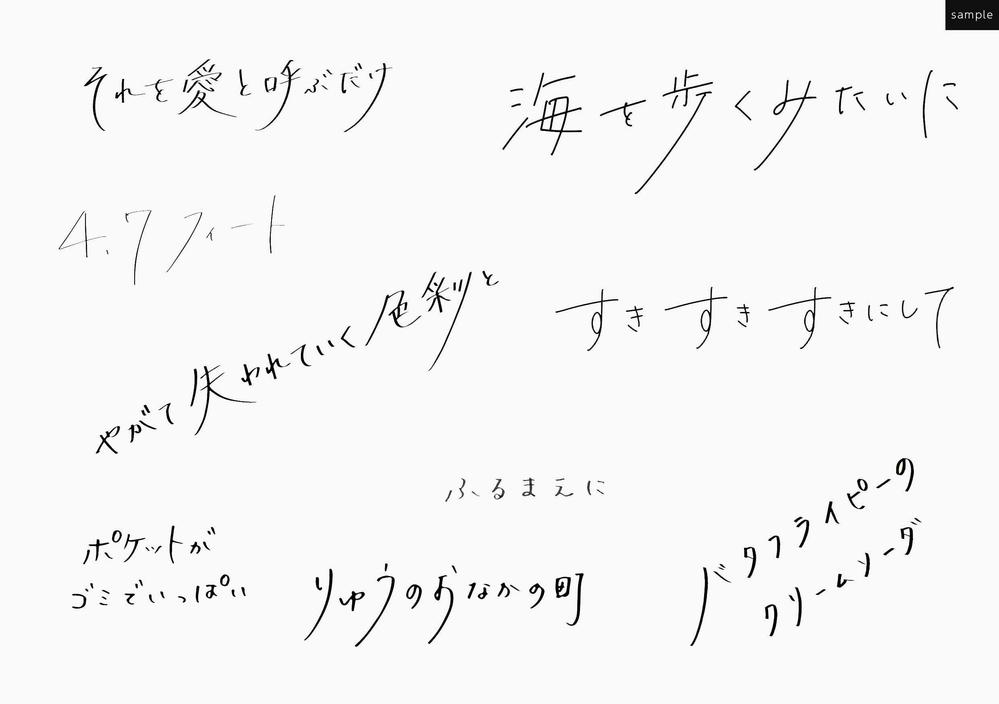 sample
それを愛と呼ぶだけ
海を歩くみたいに
4.7フィート
やがて失われていく色彩と
すき すき すきにして
ふるまえに
ポケットが
ゴミでいっぱい
りゅうのおなかの町
バタフライピーの
クリームソーダ